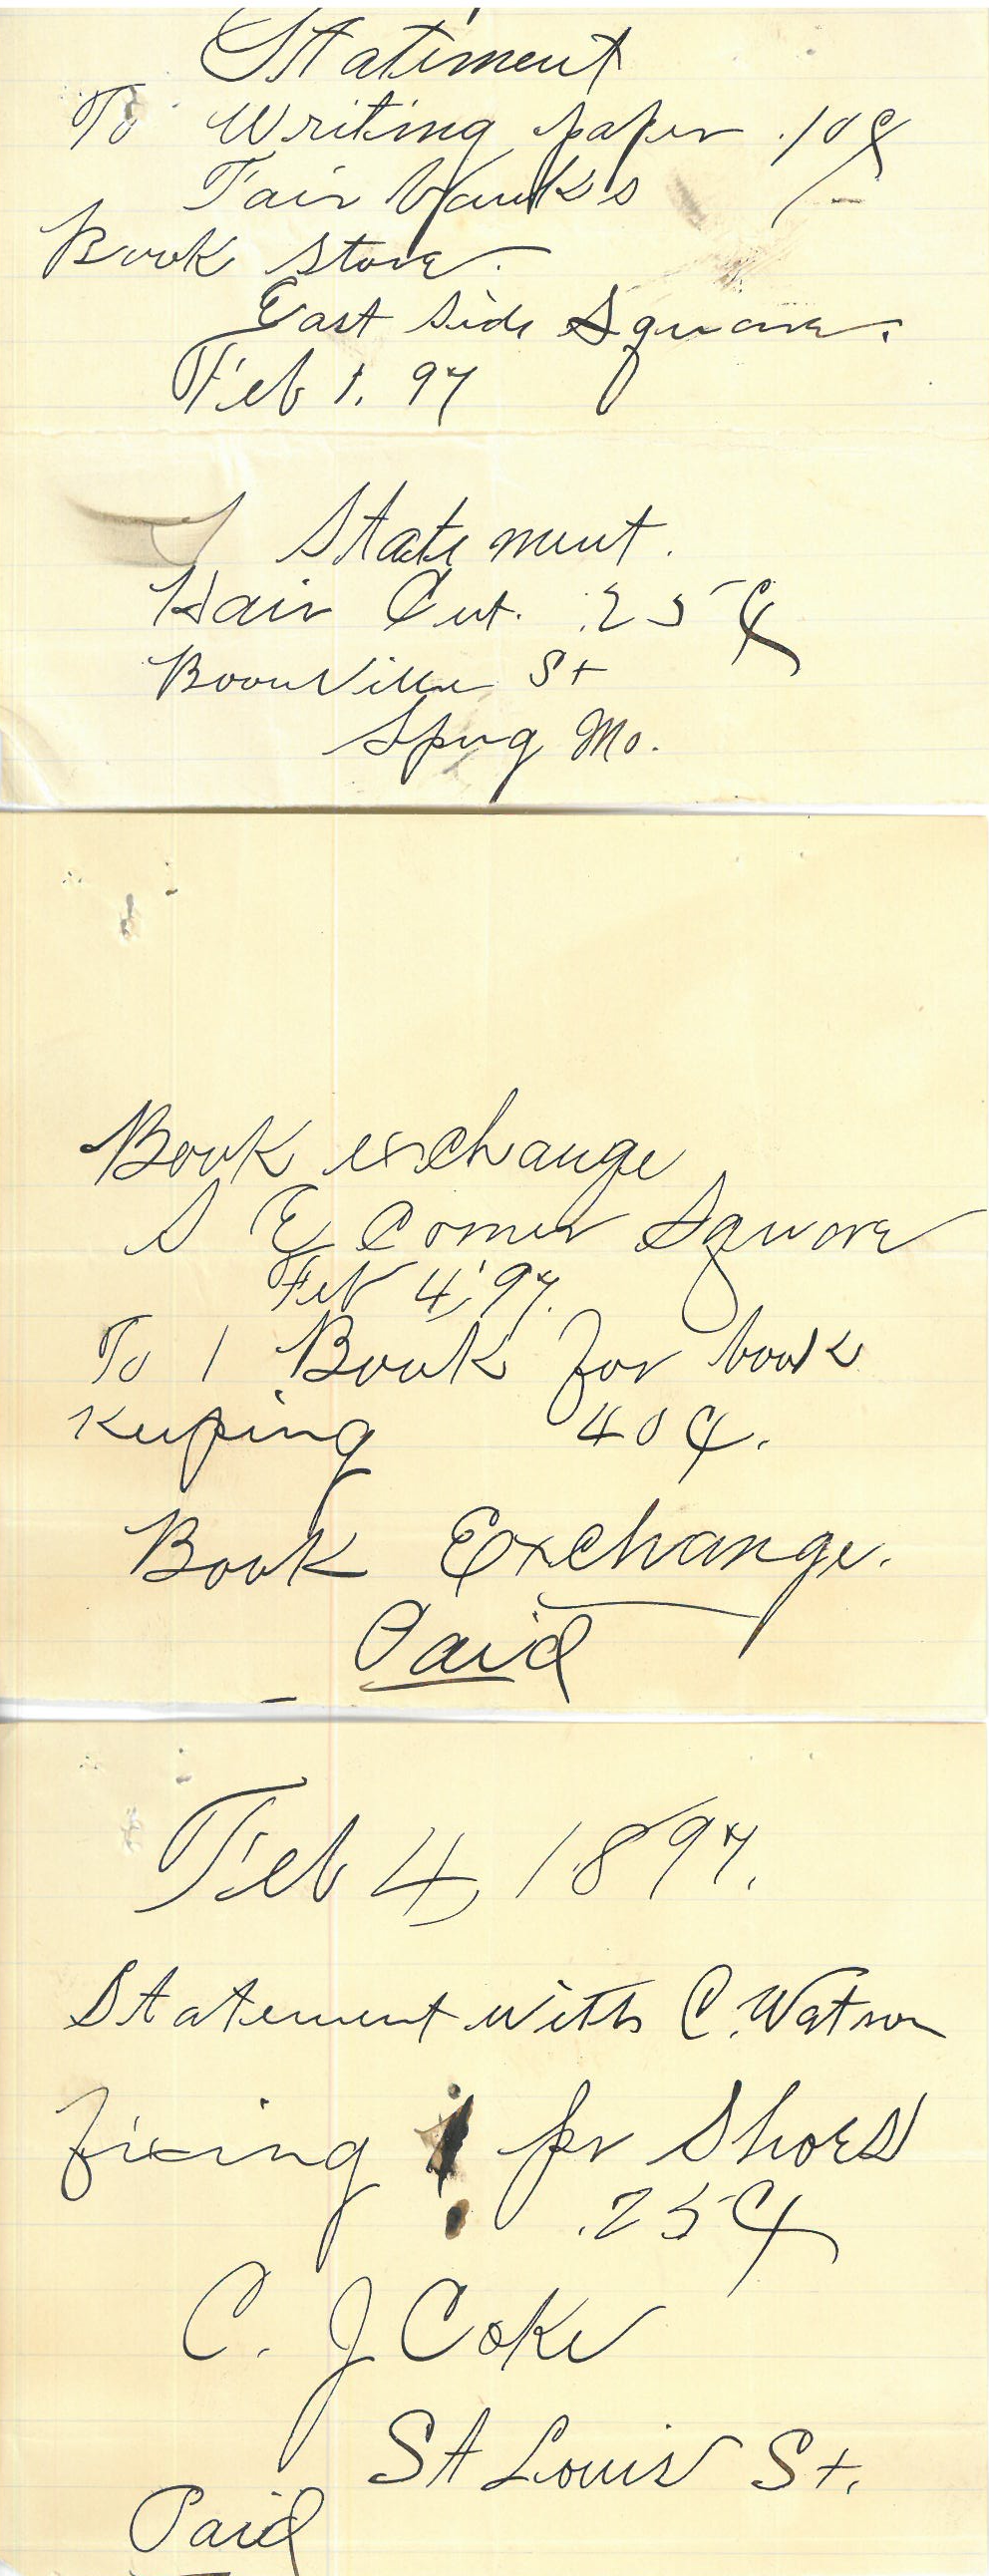 Statement
To Writing paper .10¢
Fair banks /-
Book Store.
East Side Square.
Feb 1. 97
Statement.
Hair Cut. .25¢
Boonville St
Spng Mo.
Book exchange
S E Corner Square
Feb 4, '97.
To 1 Book for book
keeping 40¢.
Book Exchange.
Paid
Feb 4, 1897.
Statement with C. Watson
fixing 1 pr Shoes
.25¢
C. J Coke
St Louis St.
Paid